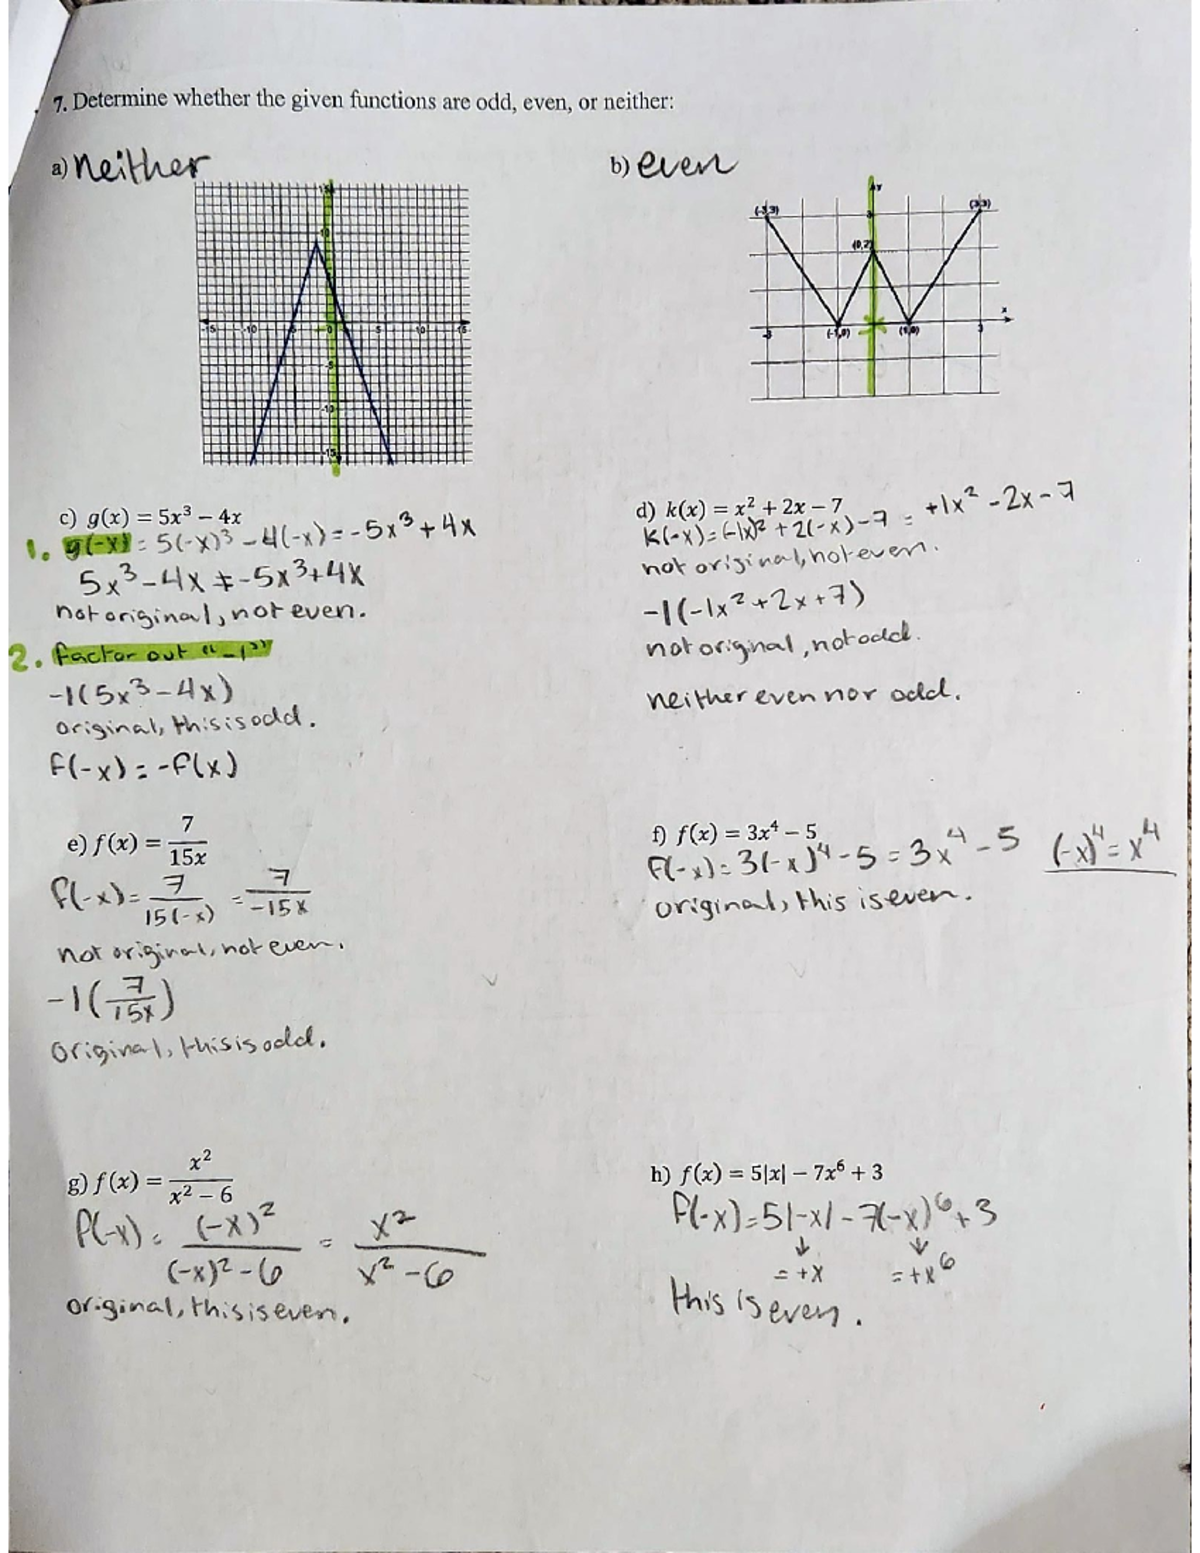 7. Determine whether the given functions are odd, even, or neither:
a) neither
b) even
15
10
-15 -10 0 5 10 15
-5
-10
-15
y
(-3,3) 3 (3,3)
(0,2)
x
-3 (-1,0) (1,0) 3
c) g(x) = 5x³ – 4x
1. g(-x) = 5(-x)³ - 4(-x) = -5x³ + 4x
5x³ - 4x ≠ -5x³ + 4x
not original, not even.
2. factor out "-1"
-1(5x³ - 4x)
original, this is odd.
f(-x) = -f(x)
d) k(x) = x² + 2x – 7
k(-x) = (-1x)² + 2(-x) - 7 = +1x² - 2x - 7
not original, not even.
-1(-1x² + 2x + 7)
not original, not odd.
neither even nor odd.
e) f(x) = 7/15x
f(-x) = 7/15(-x) = 7/-15x
not original, not even.
-1(7/15x)
original, this is odd.
f) f(x) = 3x⁴ – 5
f(-x) = 3(-x)⁴ - 5 = 3x⁴ - 5 (-x)⁴ = x⁴
original, this is even.
g) f(x) = x²/x² – 6
f(-x) = (-x)²/(-x)² - 6 = x²/x² - 6
original, this is even.
h) f(x) = 5|x| – 7x⁶ + 3
f(-x) = 5|-x| - 7(-x)⁶ + 3
↓ ↓
= +x = +x⁶
this is even.